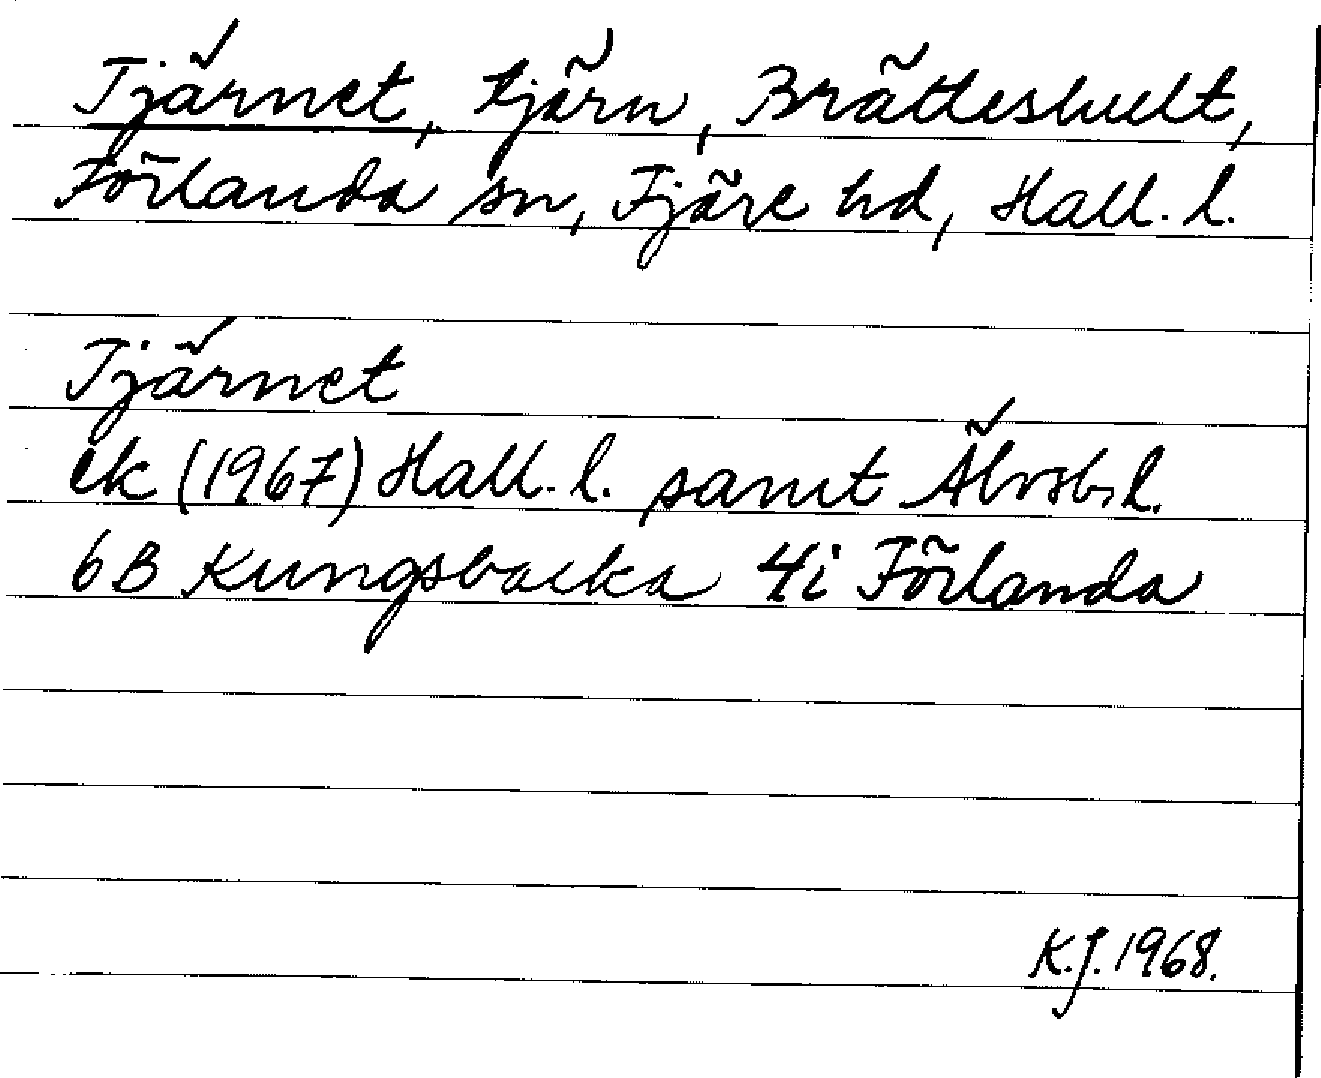 Tjärnet, tjärn, Brätteshult,
Förlanda sn, Fjäre hd, Hall. l.
Tjärnet
ek (1967) Hall. l. samt Älvsb. l.
6B Kungsbacka 4i Förlanda
K.J. 1968.